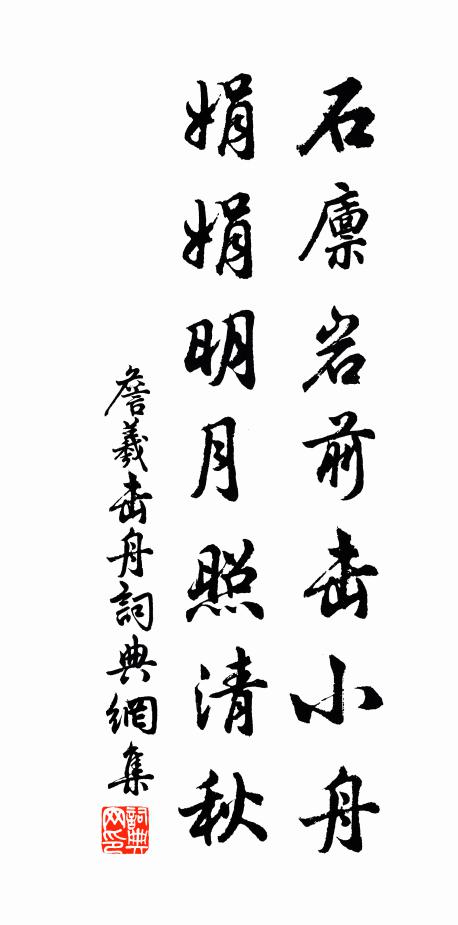 石廩岩前击小舟
娟娟明月照清秋
詹羲击舟詞典網集
詞典網印